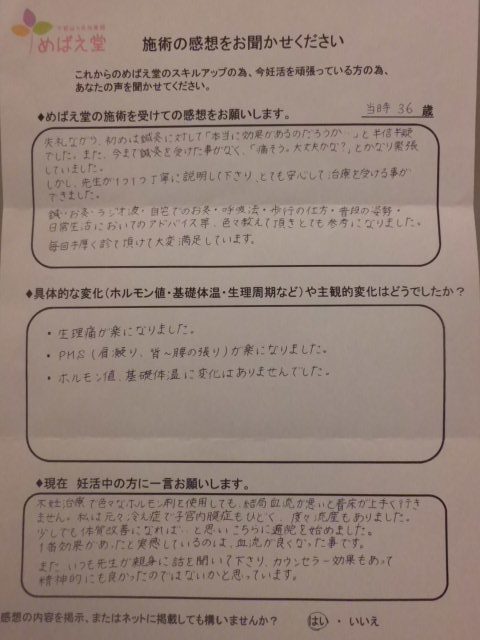 めばえ堂
施術の感想をお聞かせください
これからのめばえ堂のスキルアップの為、今妊活を頑張っている方の為、
あなたの声を聞かせてください。
◆めばえ堂の施術を受けての感想をお願いします。 当時 36 歳
失礼ながら、初めは鍼灸に対して「本当に効果があるのだろうか…」と半信半疑
でした。また、今まで鍼灸を受けた事がなく、「痛そう。大丈夫かな?」とかなり緊張
していました。
しかし、先生が1つ1つ丁寧に説明して下さり、とても安心して治療を受ける事が
できました。
鍼・お灸・ラジオ波・自宅でのお灸・呼吸法・歩行の仕方・普段の姿勢・
日常生活においてのアドバイス等、色々教えて頂きとても参考になりました。
毎回手厚く診て頂けて大変満足しています。
◆具体的な変化(ホルモン値・基礎体温・生理周期など)や主観的変化はどうでしたか?
・生理痛が楽になりました。
・PMS(肩凝り、背〜腰の張り)が楽になりました。
・ホルモン値、基礎体温に変化はありませんでした。
◆現在 妊活中の方に一言お願いします。
不妊治療で色々なホルモン剤を使用しても、結局血流が悪いと着床が上手く行き
ません。私は元々冷え症で子宮内膜症もひどく、度々流産もありました。
少しでも体質改善になれば…と思いこちらに通院を始めました。
1番効果があったと実感しているのは、血流が良くなった事です。
また、いつも先生が親身に話を聞いて下さり、カウンセラー効果もあって
精神的にも良かったのではないかと思っています。
感想の内容を掲示、またはネットに掲載しても構いませんか? はい ・ いいえ